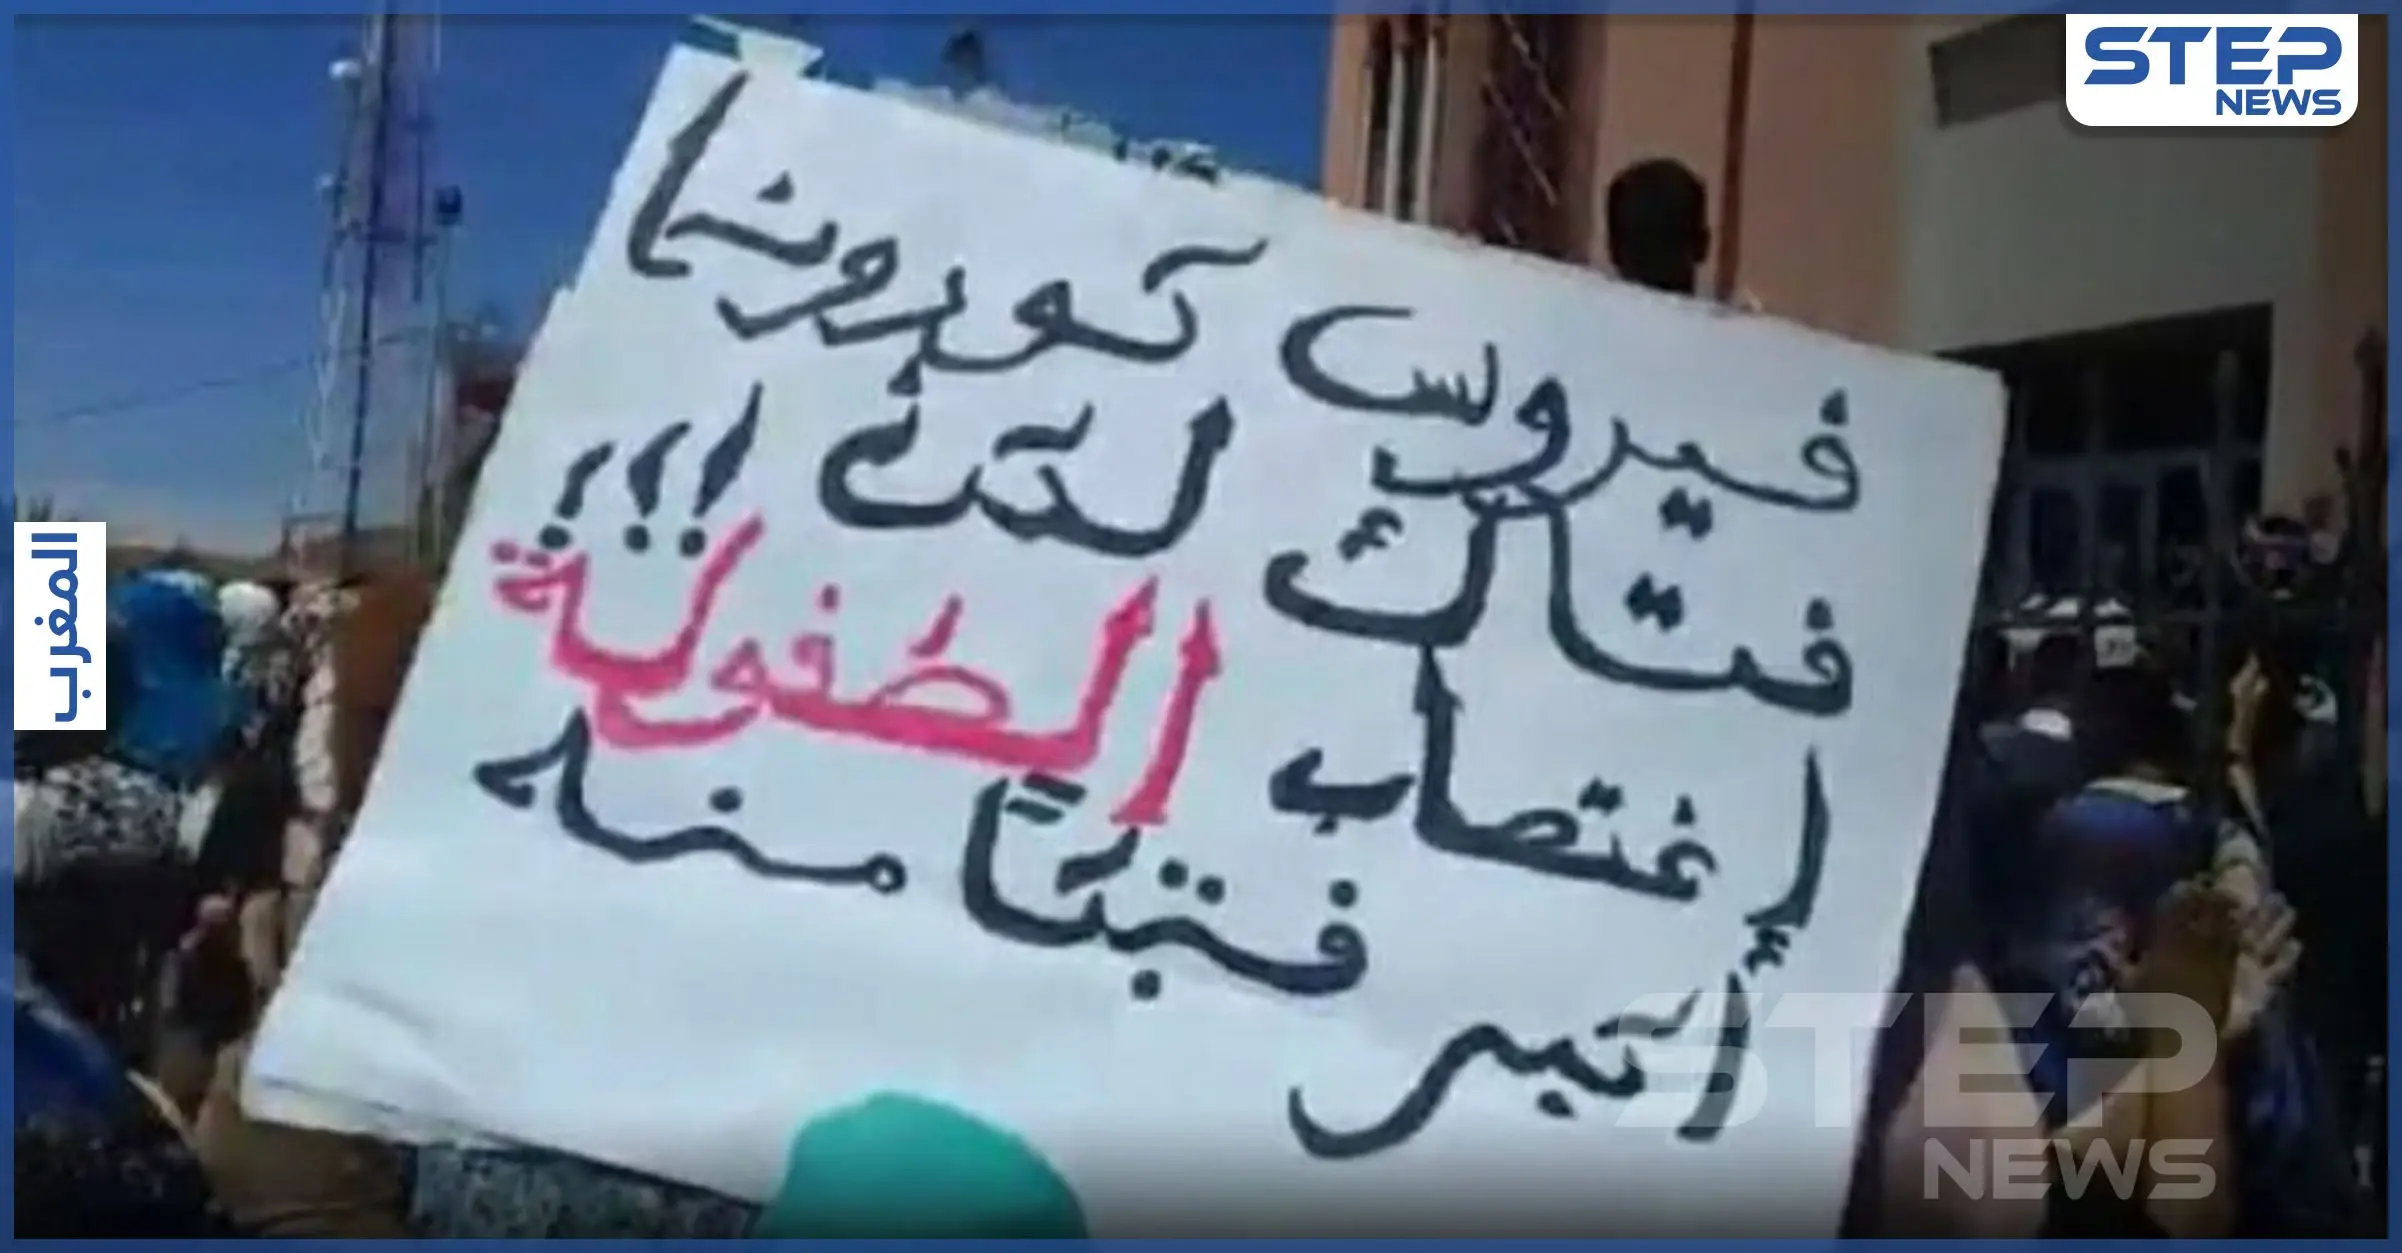 STEP
NEWS
فيروس كورونا
فتاك لكن !!!
إغتصاب الطفولة
أكبر فتكًا منه
المغرب
STEP
NEWS